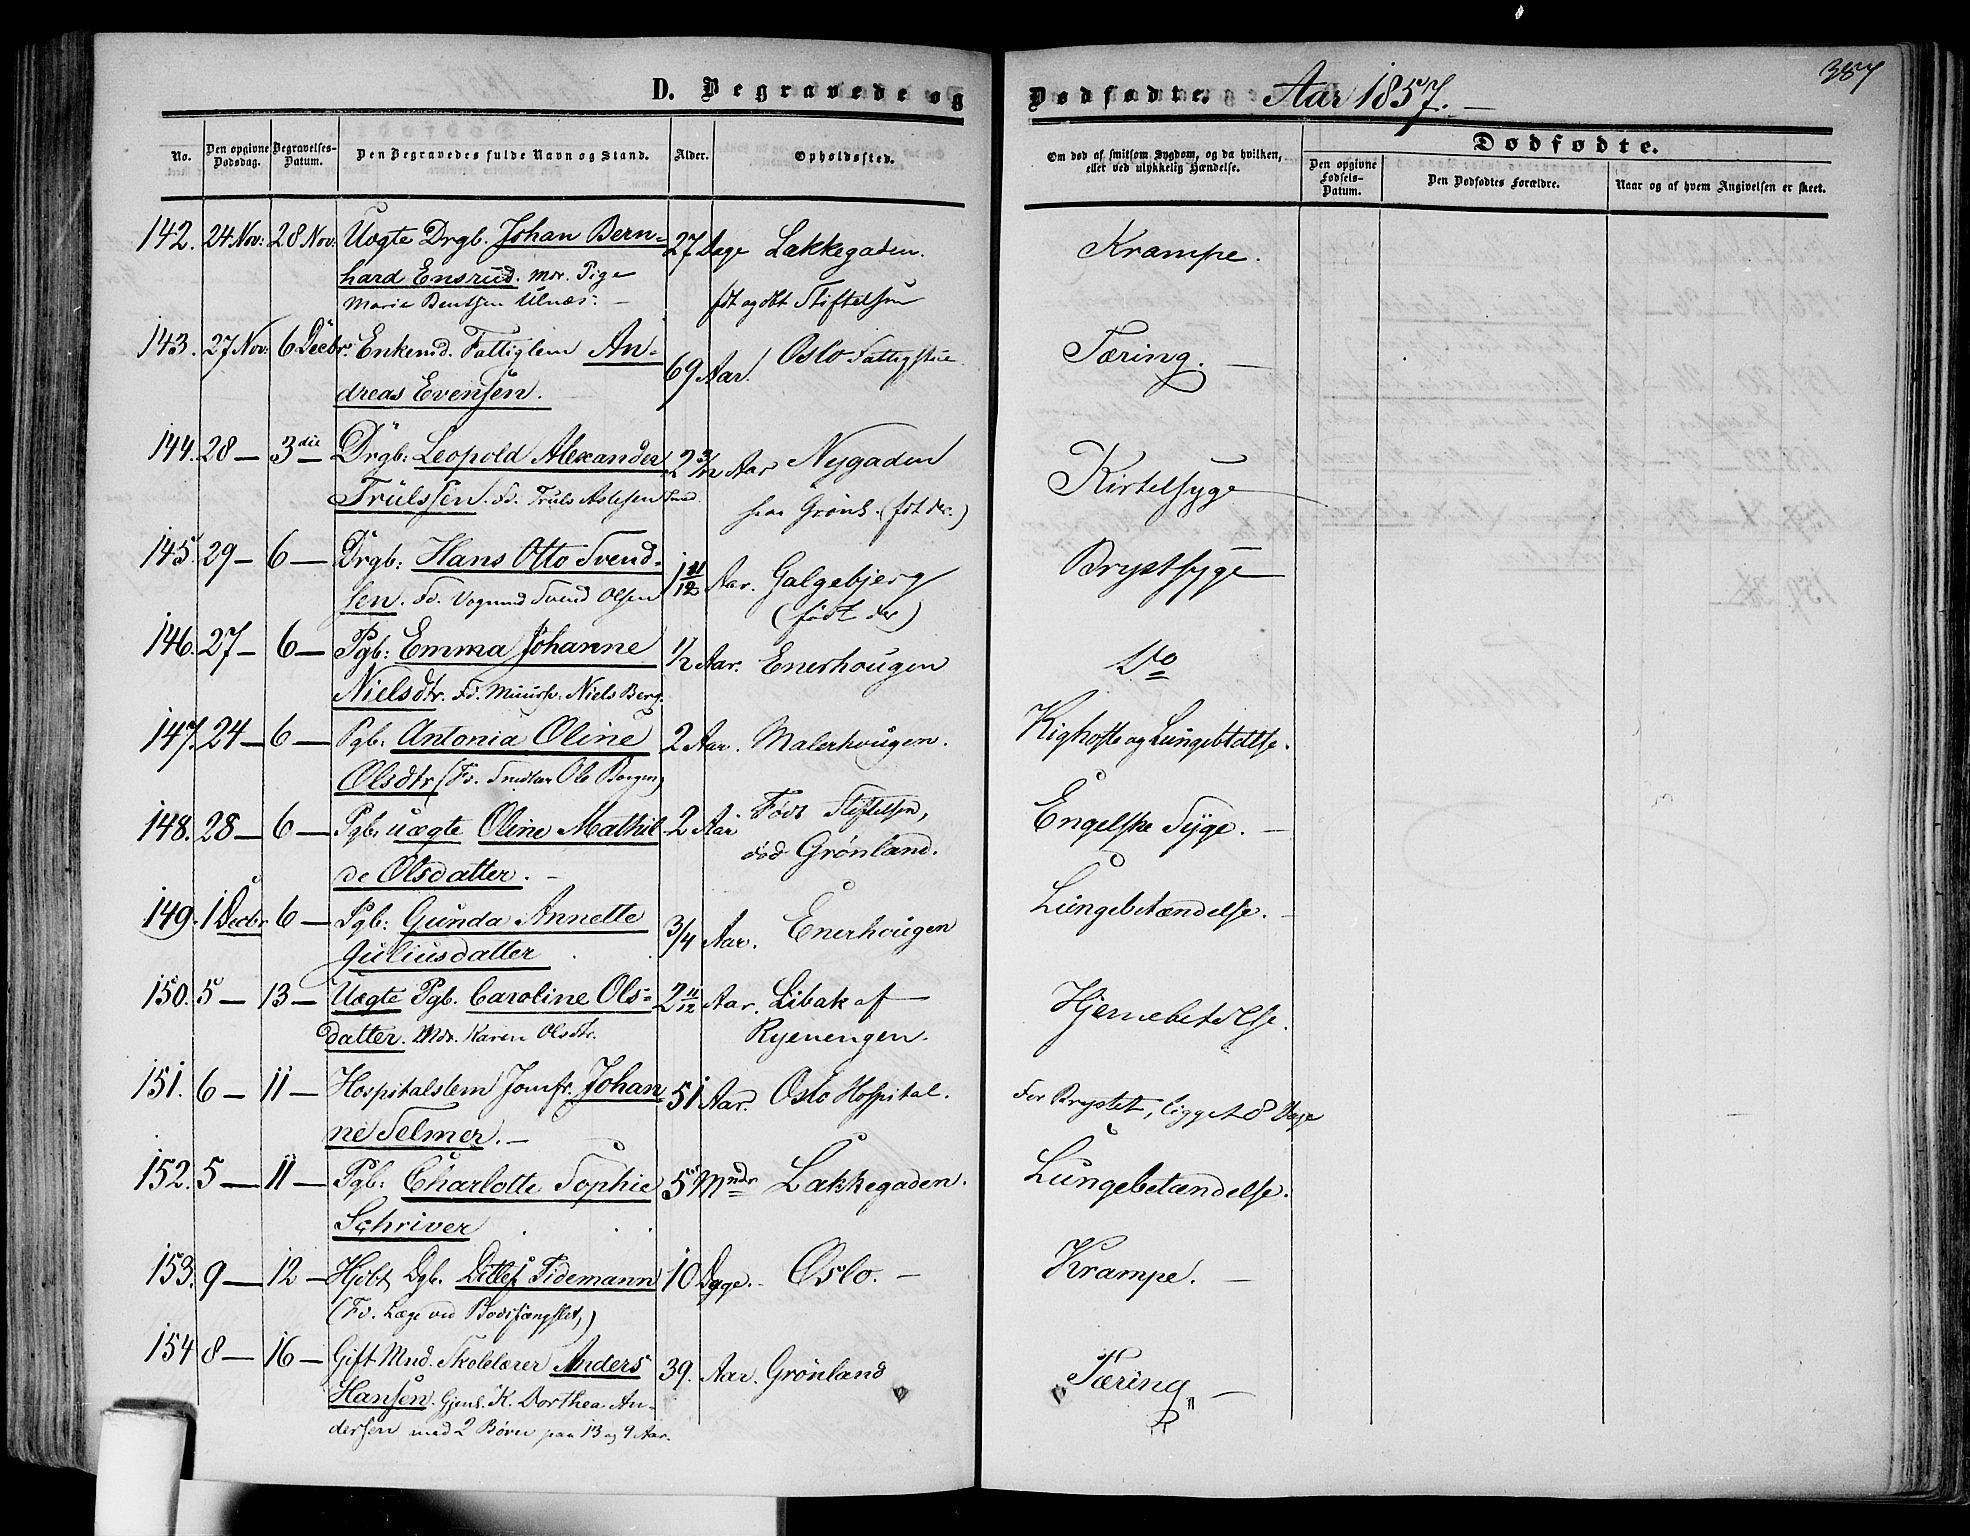 387
D. Begravede og Dødfødte. Aar 1857.
Dødfødte.
No. Den opgivne Dødsdag. Begravelses-Datum. Den Begravedes fulde Navn og Stand. Alder. Opholdssted. Om død af smitsom Sygdom, og da hvilken, eller ved ulykkelig Hændelse. Den opgivne Fødsels-Datum. Den Dødfødtes Forældre. Naar og af hvem Angivelsen er skeet.
142. 24 Nov: 28 Nov. Uægte Drgb. Johan Bern- 27 Dage Lakkegaden. Krampe.
hard Ensrud. Mdr. Pige
Marie Bentsen Ulnæs. — fdt og dbt Stiftelsen
143. 27 Nov. 6 Decbr. Enkemd. Fattiglem An- 69 Aar. Oslo Fattigstue Tæring. —
dreas Evensen.
144. 28 — 3die Drgb: Leopold Alexander 2 3/12 Aar Nygaden Kirtelsyge
Trulssen. Fd. Truls Aslesen paa Grønl. (fdt der.)
145. 29 — 6 — Drgb: Hans Otto Svend- 1 11/12 Aar. Galgebjerg Brystsyge
sen. Fd. Vognmd Svend Olsen (født der)
146. 27 — 6 — Pgb: Emma Johanne 1/2 Aar. Enerhougen Do
Nielsdtr. Fd. Muursv: Niels Berg.
147. 24 — 6 — Pgb: Antonia Oline 2 Aar. Malerhougen. Kighoste og Lungebtdlse.
Olsdtr (Fd. Snedker Ole Borgen)
148. 28 — 6 — Pgb. uægte Oline Mathil- 2 Aar Født Stiftelsen, Engelske Syge. —
de Olsdatter. — død Grønland.
149. 1 Decbr 6 — Pgb: Gunda Annette 3/4 Aar. Enerhougen Lungebetændelse. —
Juliusdatter
150. 5 — 13 — Uægte Pgb. Caroline Ols- 2 11/12 Aar. Libak af Hjernebetdlse.
datter. Mdr. Karen Olsdtr. Ryenengen.
151. 6 — 11 — Hospitalslem Jomfr. Johan- 51 Aar. Oslo Hospital. For Brystet, ligget 8 Dage
ne Selmer. —
152. 5 — 11 — Pgb: Charlotte Sophie 5 Mndr Lakkegaden. Lungebetændelse.
Schriver
153. 9 — 12 — Hjdbt Dgb. Ditlef Tidemann 10 Dage. — Oslo. — Krampe. —
(Fd. Læge ved Bodsfængslet,)
154 8 — 16 — Gift Mnd. Skolelærer Anders 39. Aar. Grønland Tæring —
Hansen. Gjenl. K. Dorthea An-
dersen med 2 Børn paa 13 og 9 Aar.